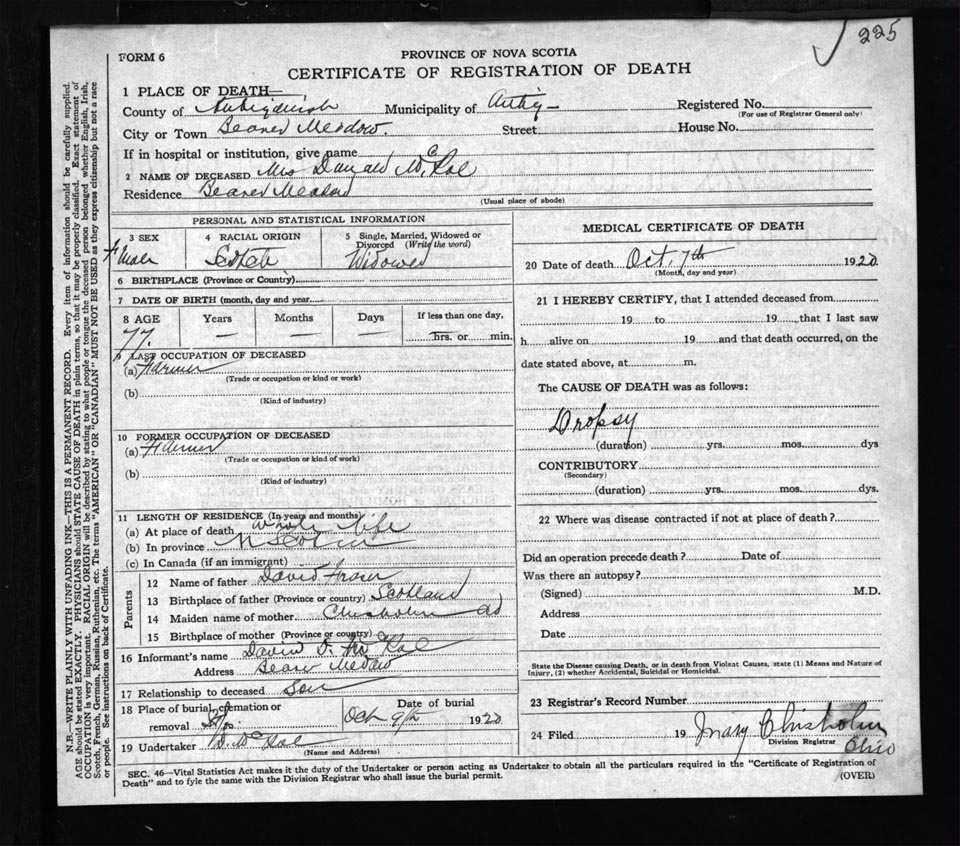 225
FORM 6
PROVINCE OF NOVA SCOTIA
CERTIFICATE OF REGISTRATION OF DEATH
1 PLACE OF DEATH—
County of Antigonish Municipality of Antig— Registered No.
(For use of Registrar General only)
City or Town Beaver Meadow. Street House No.
If in hospital or institution, give name
2 NAME OF DECEASED Mrs Donald McRae
Residence Beaver Meadow
(Usual place of abode)
PERSONAL AND STATISTICAL INFORMATION
3 SEX 4 RACIAL ORIGIN 5 Single, Married, Widowed or Divorced (Write the word)
Scotch Widowed
6 BIRTHPLACE (Province or Country)
7 DATE OF BIRTH (month, day and year)
8 AGE Years Months Days If less than one day,
77 — — — hrs. or min.
9 LAST OCCUPATION OF DECEASED
(a) Farmer
(Trade or occupation or kind or work)
(b)
(Kind of industry)
10 FORMER OCCUPATION OF DECEASED
(a) Farmer
(Trade or occupation or kind of work)
(b)
(Kind of industry)
11 LENGTH OF RESIDENCE (In years and months)
(a) At place of death whole life
(b) In province
(c) In Canada (if an immigrant)
Parents
12 Name of father David Fraser
13 Birthplace of father (Province or country) Scotland
14 Maiden name of mother Chisholm
15 Birthplace of mother (Province or country)
16 Informant's name David McRae
Address Beaver Meadow
17 Relationship to deceased Son
18 Place of burial, cremation or removal Date of burial
Oct 9th 1920
19 Undertaker McRae
(Name and Address)
MEDICAL CERTIFICATE OF DEATH
20 Date of death Oct. 7th 1920
(Month, day and year)
21 I HEREBY CERTIFY, that I attended deceased from
19 to 19, that I last saw
h alive on 19 and that death occurred, on the
date stated above, at m.
The CAUSE OF DEATH was as follows:
Dropsy
(duration) yrs. mos. dys
CONTRIBUTORY
(Secondary)
(duration) yrs. mos. dys.
22 Where was disease contracted if not at place of death?
Did an operation precede death? Date of
Was there an autopsy?
(Signed) M.D.
Address
Date
State the Disease causing Death, or in death from Violent Causes, state (1) Means and Nature of
Injury, (2) whether Accidental, Suicidal or Homicidal.
23 Registrar's Record Number
24 Filed 19 Mary Chisholm
Division Registrar
Ohio
SEC. 46—Vital Statistics Act makes it the duty of the Undertaker or person acting as Undertaker to obtain all the particulars required in the "Certificate of Registration of
Death" and to fyle the same with the Division Registrar who shall issue the burial permit.
(OVER)
N.B.—WRITE PLAINLY WITH UNFADING INK—THIS IS A PERMANENT RECORD. Every item of information should be carefully supplied.
AGE should be stated EXACTLY. PHYSICIANS should STATE CAUSE OF DEATH in plain terms, so that it may be properly classified. Exact statement of
OCCUPATION is very important. RACIAL ORIGIN will be described by stating to what people or tongue the deceased person belonged whether English, Irish,
Scotch, French, German, Russian, Ruthenian, etc. The terms "AMERICAN" OR "CANADIAN" MUST NOT BE USED as they express citizenship but not a race
or people. See instructions on back of Certificate.